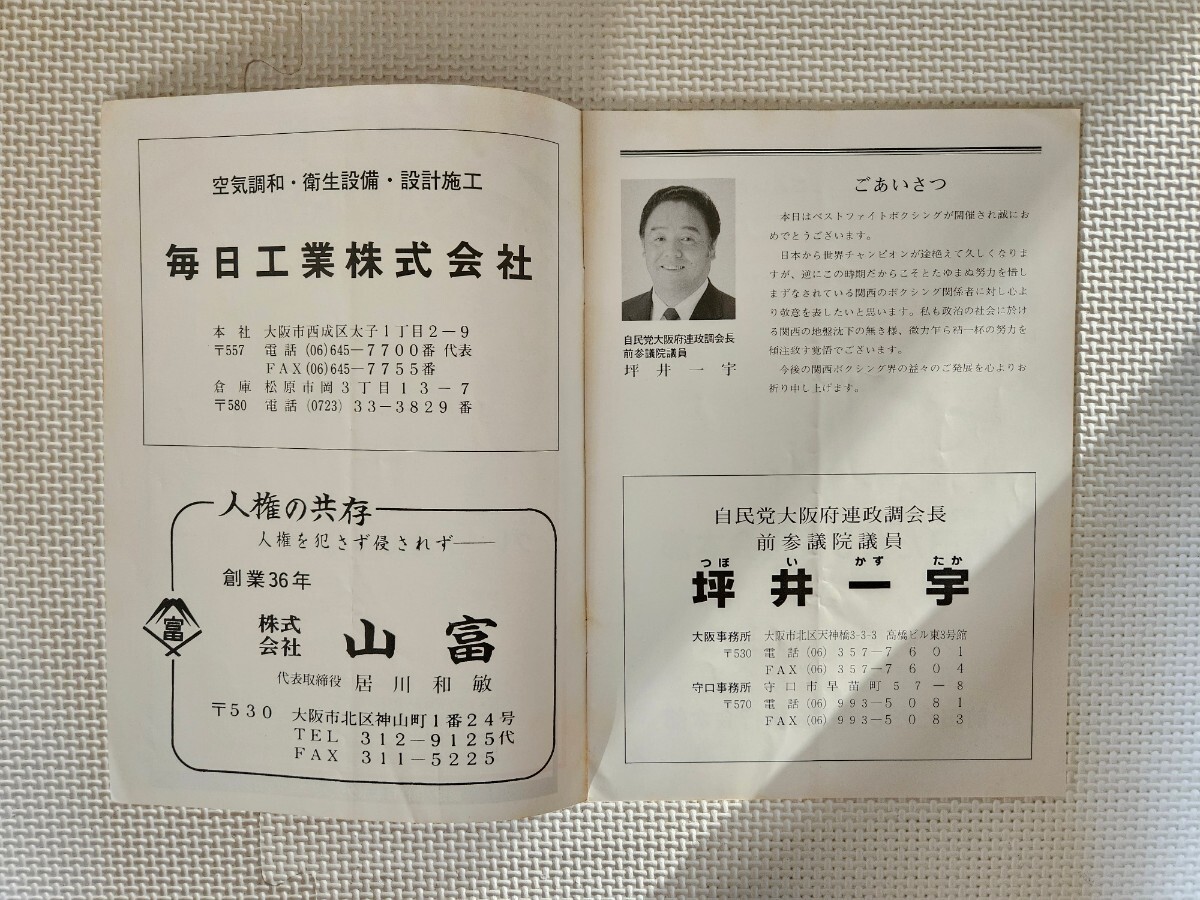 空気調和・衛生設備・設計施工
毎日工業株式会社
本社 大阪市西成区太子1丁目2-9
〒557 電話(06)645-7700番 代表
FAX(06)645-7755番
倉庫 松原市岡3丁目13-7
〒580 電話(0723)33-3829番
人権の共存
人権を犯さず侵されず――
創業36年
富
株式会社 山富
代表取締役 居川和敏
〒530 大阪市北区神山町1番24号
TEL 312-9125代
FAX 311-5225
ごあいさつ
本日はベストファイトボクシングが開催され誠にお
めでとうございます。
日本から世界チャンピオンが途絶えて久しくなりま
すが、逆にこの時期だからこそとたゆまぬ努力を惜し
まずなされている関西のボクシング関係者に対し心よ
り敬意を表したいと思います。私も政治の社会に於け
る関西の地盤沈下の無き様、微力乍ら精一杯の努力を
傾注致す覚悟でございます。
今後の関西ボクシング界の益々のご発展を心よりお
祈り申し上げます。
自民党大阪府連政調会長
前参議院議員
坪井一宇
自民党大阪府連政調会長
前参議院議員
つぼ い かず たか
坪井一宇
大阪事務所 大阪市北区天神橋3-3-3 高橋ビル東3号館
〒530 電話(06)357-7601
FAX(06)357-7604
守口事務所 守口市早苗町57-8
〒570 電話(06)993-5081
FAX(06)993-5083